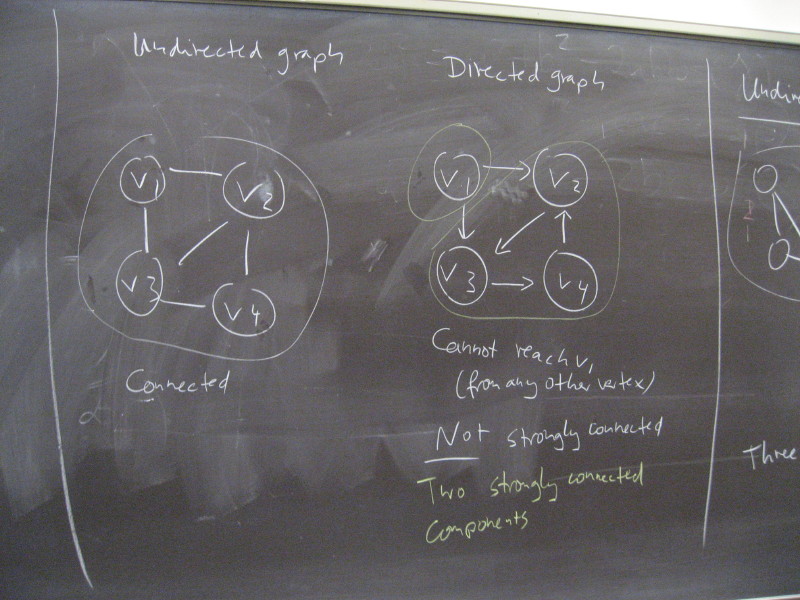 Undirected graph
V1 V2
V3 V4
Connected
Directed graph
V1 V2
V3 V4
Cannot reach v1
(from any other vertex)
Not strongly connected
Two strongly connected
components
Three